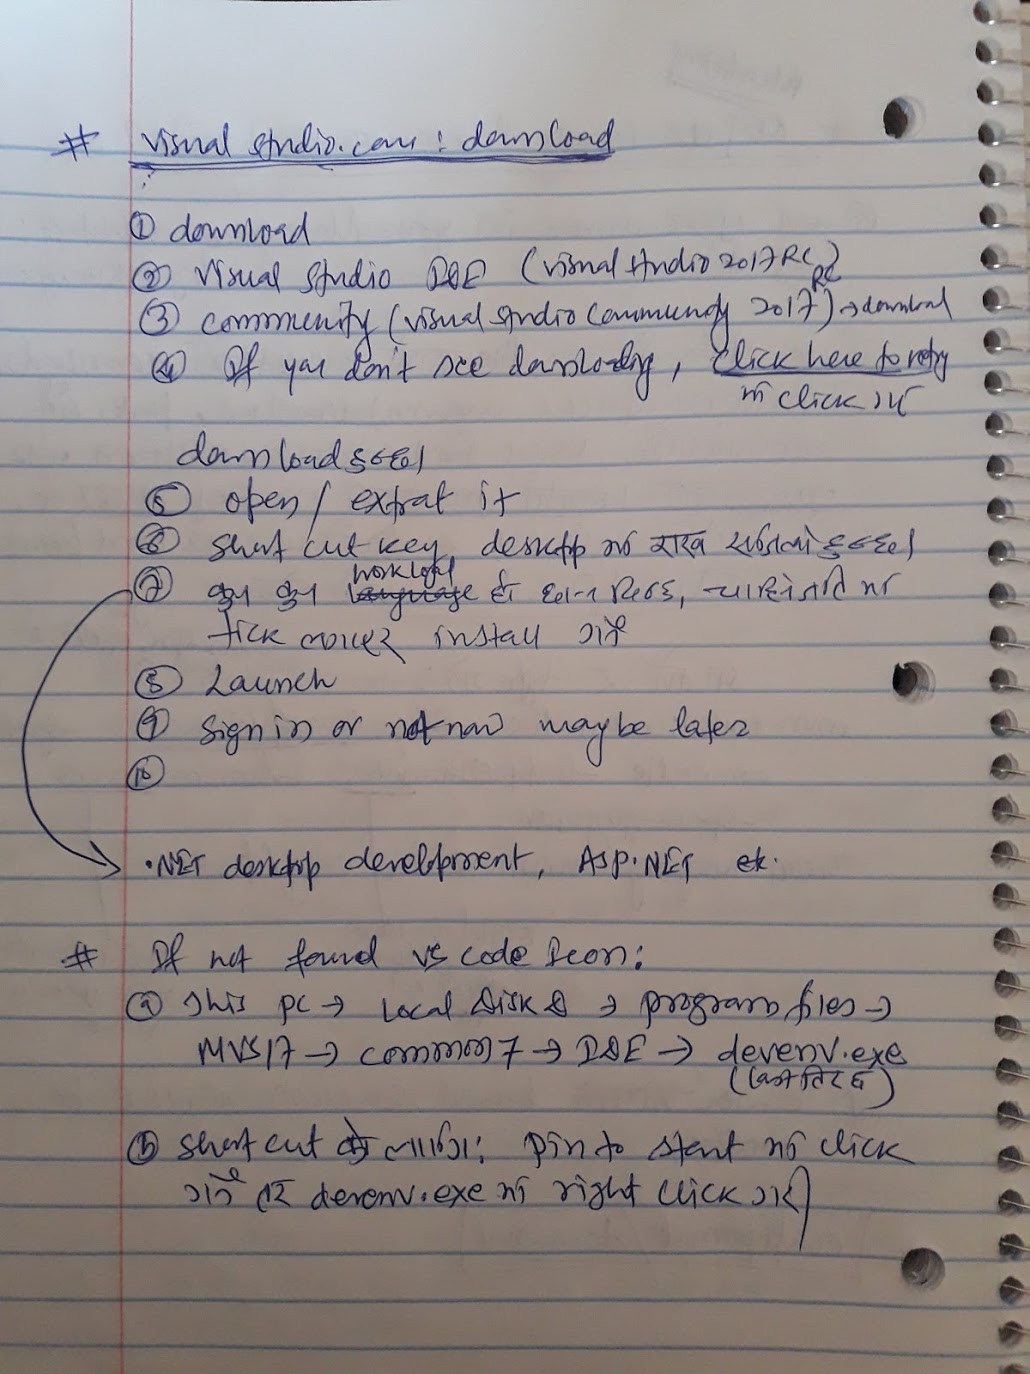 # visual studio.com : download
① download
② Visual Studio IDE (visual studio 2017 RC)
③ community (visual studio community 2017 RC) → download
④ If you don't see downloading, click here to retry
मा click गर्नु
download हुन्छ।
⑤ open / extrat it
⑥ short cut key, desktop मा राख्न सकिन्छ।
⑦ कुन कुन workload
tick install गर्ने
⑧ Launch
⑨ sign in or not now maybe later
⑩
.NET desktop development, ASP.NET etc.
# If not found VS code Icon:
ⓐ This pc → Local Disk → program files →
MVS17 → common7 → IDE → devenv.exe
ⓑ short cut को लागि: pin to start मा click
गर्ने devenv.exe मा right click गरी